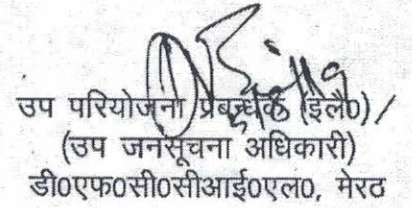 उप परियोजना प्रबन्धक (इलै0)/
(उप जनसूचना अधिकारी)
डी0एफ0सी0सीआई0एल0, मेरठ